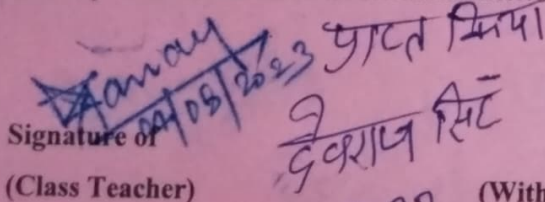 04/08/2023 प्राप्त किया
देवराज सिंह
Signature of
(Class Teacher) (With